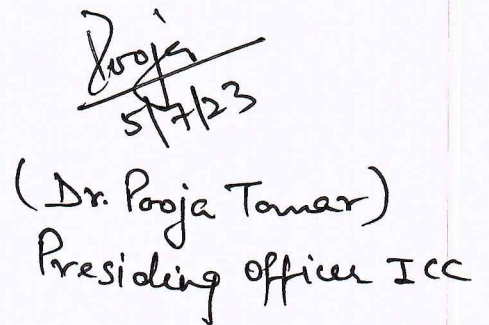 Pooja
5/7/23
(Dr. Pooja Tomar)
Presiding Officer ICC